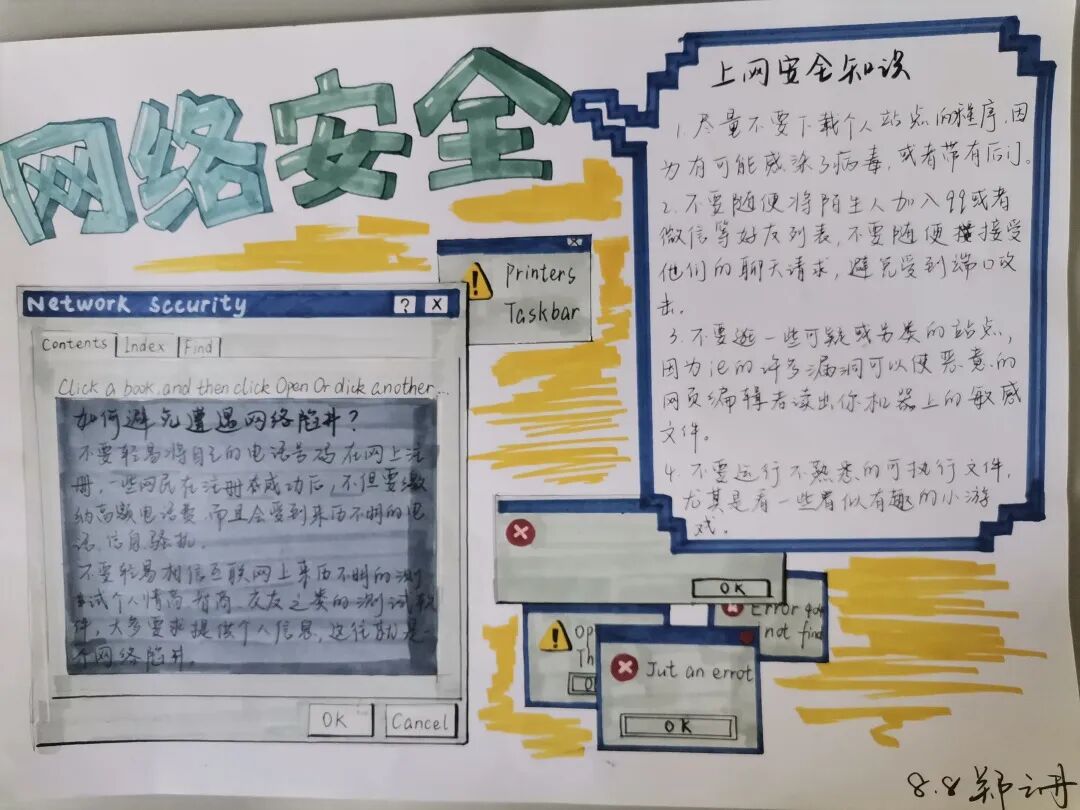 网络安全
Network Sccurity
? X
Contents Index Find
Click a book, and then click Open Or dick another...
如何避免遭遇网络陷井?
不要轻易将自己的电话号码在网上注
册,一些网民在注册成功后,不但要缴
纳高额电话费,而且会受到来历不明的电
话、信息骚扰。
不要轻易相信互联网上来历不明的测
试个人情商智商、交友之类的测试软
件,大多要求提供个人信息,这往往就是一
个网络陷井。
OK Cancel
Printers
Taskbar
上网安全知识
1.尽量不要下载个人站点的程序,因
为有可能感染了病毒,或者带有后门。
2.不要随便将陌生人加入qq或者
微信等好友列表,不要随便接受
他们的聊天请求,避免受到端口攻
击。
3.不要逛一些可疑或另类的站点,
因为ie的许多漏洞可以使恶意的
网页编辑者读出你机器上的敏感
文件。
4.不要运行不熟悉的可执行文件,
尤其是看一些看似有趣的小游
戏。
OK
Op
Th
Error
not find
Jut an errot
OK
8.8 郑